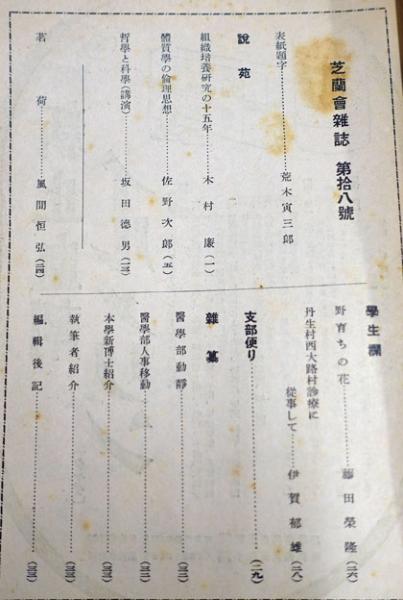 芝蘭會雜誌　第拾八號
表紙題字……荒木寅三郎
說苑
組織培養硏究の十五年……木村廉（一）
體質學の倫理思想……佐野次郎（五）
哲學と科學（講演）……坂田德男（一三）
茗荷……風間恒弘（二四）
學生欄
野育ちの花……藤田榮隆（二六）
丹生村西大路村診療に
從事して……伊賀郁雄（二八）
支部便り……（二九）
雜纂
醫學部動靜……（三一）
醫學部人事移動……（三二）
本學新博士紹介……
執筆者紹介……
編輯後記……